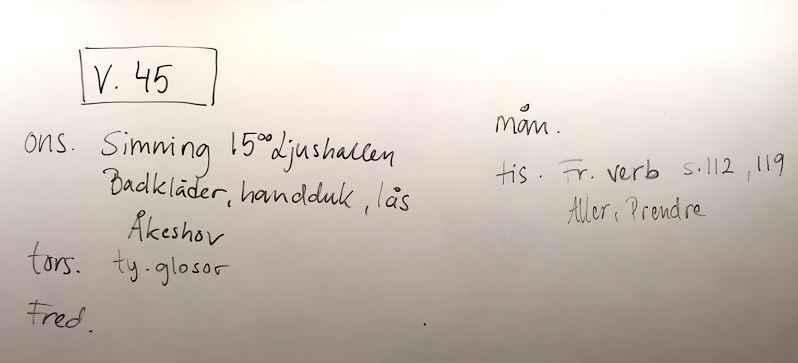 V. 45
ons. Simning 15⁰⁰ Ljushallen
Badkläder, handduk, lås
Åkeshov
tors. ty. glosor
Fred.
mån.
tis. Fr. verb s. 112, 119
Aller, Prendre